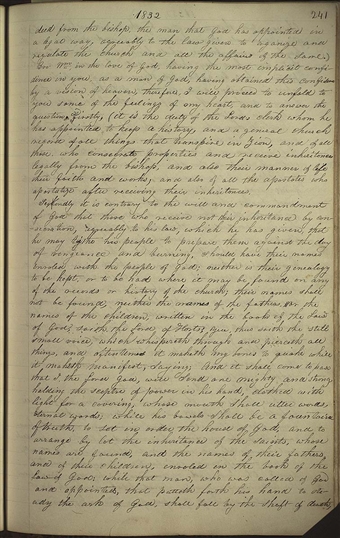 1832
241
deed from the bishop, the man that God has appointed in
a legal way, agreeably to the law given to organize and
regulate the church and all the affairs of the same.
Bro Wm. in the love of God, having the most implicit confi-
dence in you, as a man of God, having obtained this confidence
by a vision of heaven, therefore, I will proceed to unfold to
you some of the feelings of my heart, and to answer the
question, Firstly, (it is the duty of the Lord's clerk whom he
has appointed to keep a history, and a general church
record of all things that transpire in Zion, and of all
those who consecrate properties and receive inheritances
legally from the bishop, and also their manner of life,
their faith and works; and also of all the apostates who
apostatize after receiving their inheritances.
Secondly it is contrary to the will and commandment
of God that those who receive not their inheritance by con-
secration, agreeably to his law, which he has given, that
he may tithe his people to prepare them against the day
of vengeance and burning, should have their names
enrolled with the people of God; neither is their genealogy
to be kept, or to be had where it may be found on any
of the records or history of the church; their names shall
not be found, neither the names of the fathers or the
names of the children, written in the book of the law
of God, saith the Lord of Hosts, yea, thus saith the still
small voice, which whispereth through and pierceth all
things, and oftentimes it maketh my bones to quake while
it maketh manifest, saying; And it shall come to pass
that I, the Lord God, will send one mighty and strong
holding the scepter of power in his hand, clothed with
light for a covering, whose mouth shall utter words,
eternal words; while his bowels shall be a fountain
of truth, to set in order the house of God, and to
arrange by lot the inheritance of the saints, whose
names are found, and the names of their fathers,
and of their children, enrolled in the book of the
law of God: while that man, who was called of God
and appointed, that putteth forth his hand to ste-
ady the ark of God, shall fall by the shaft of death,